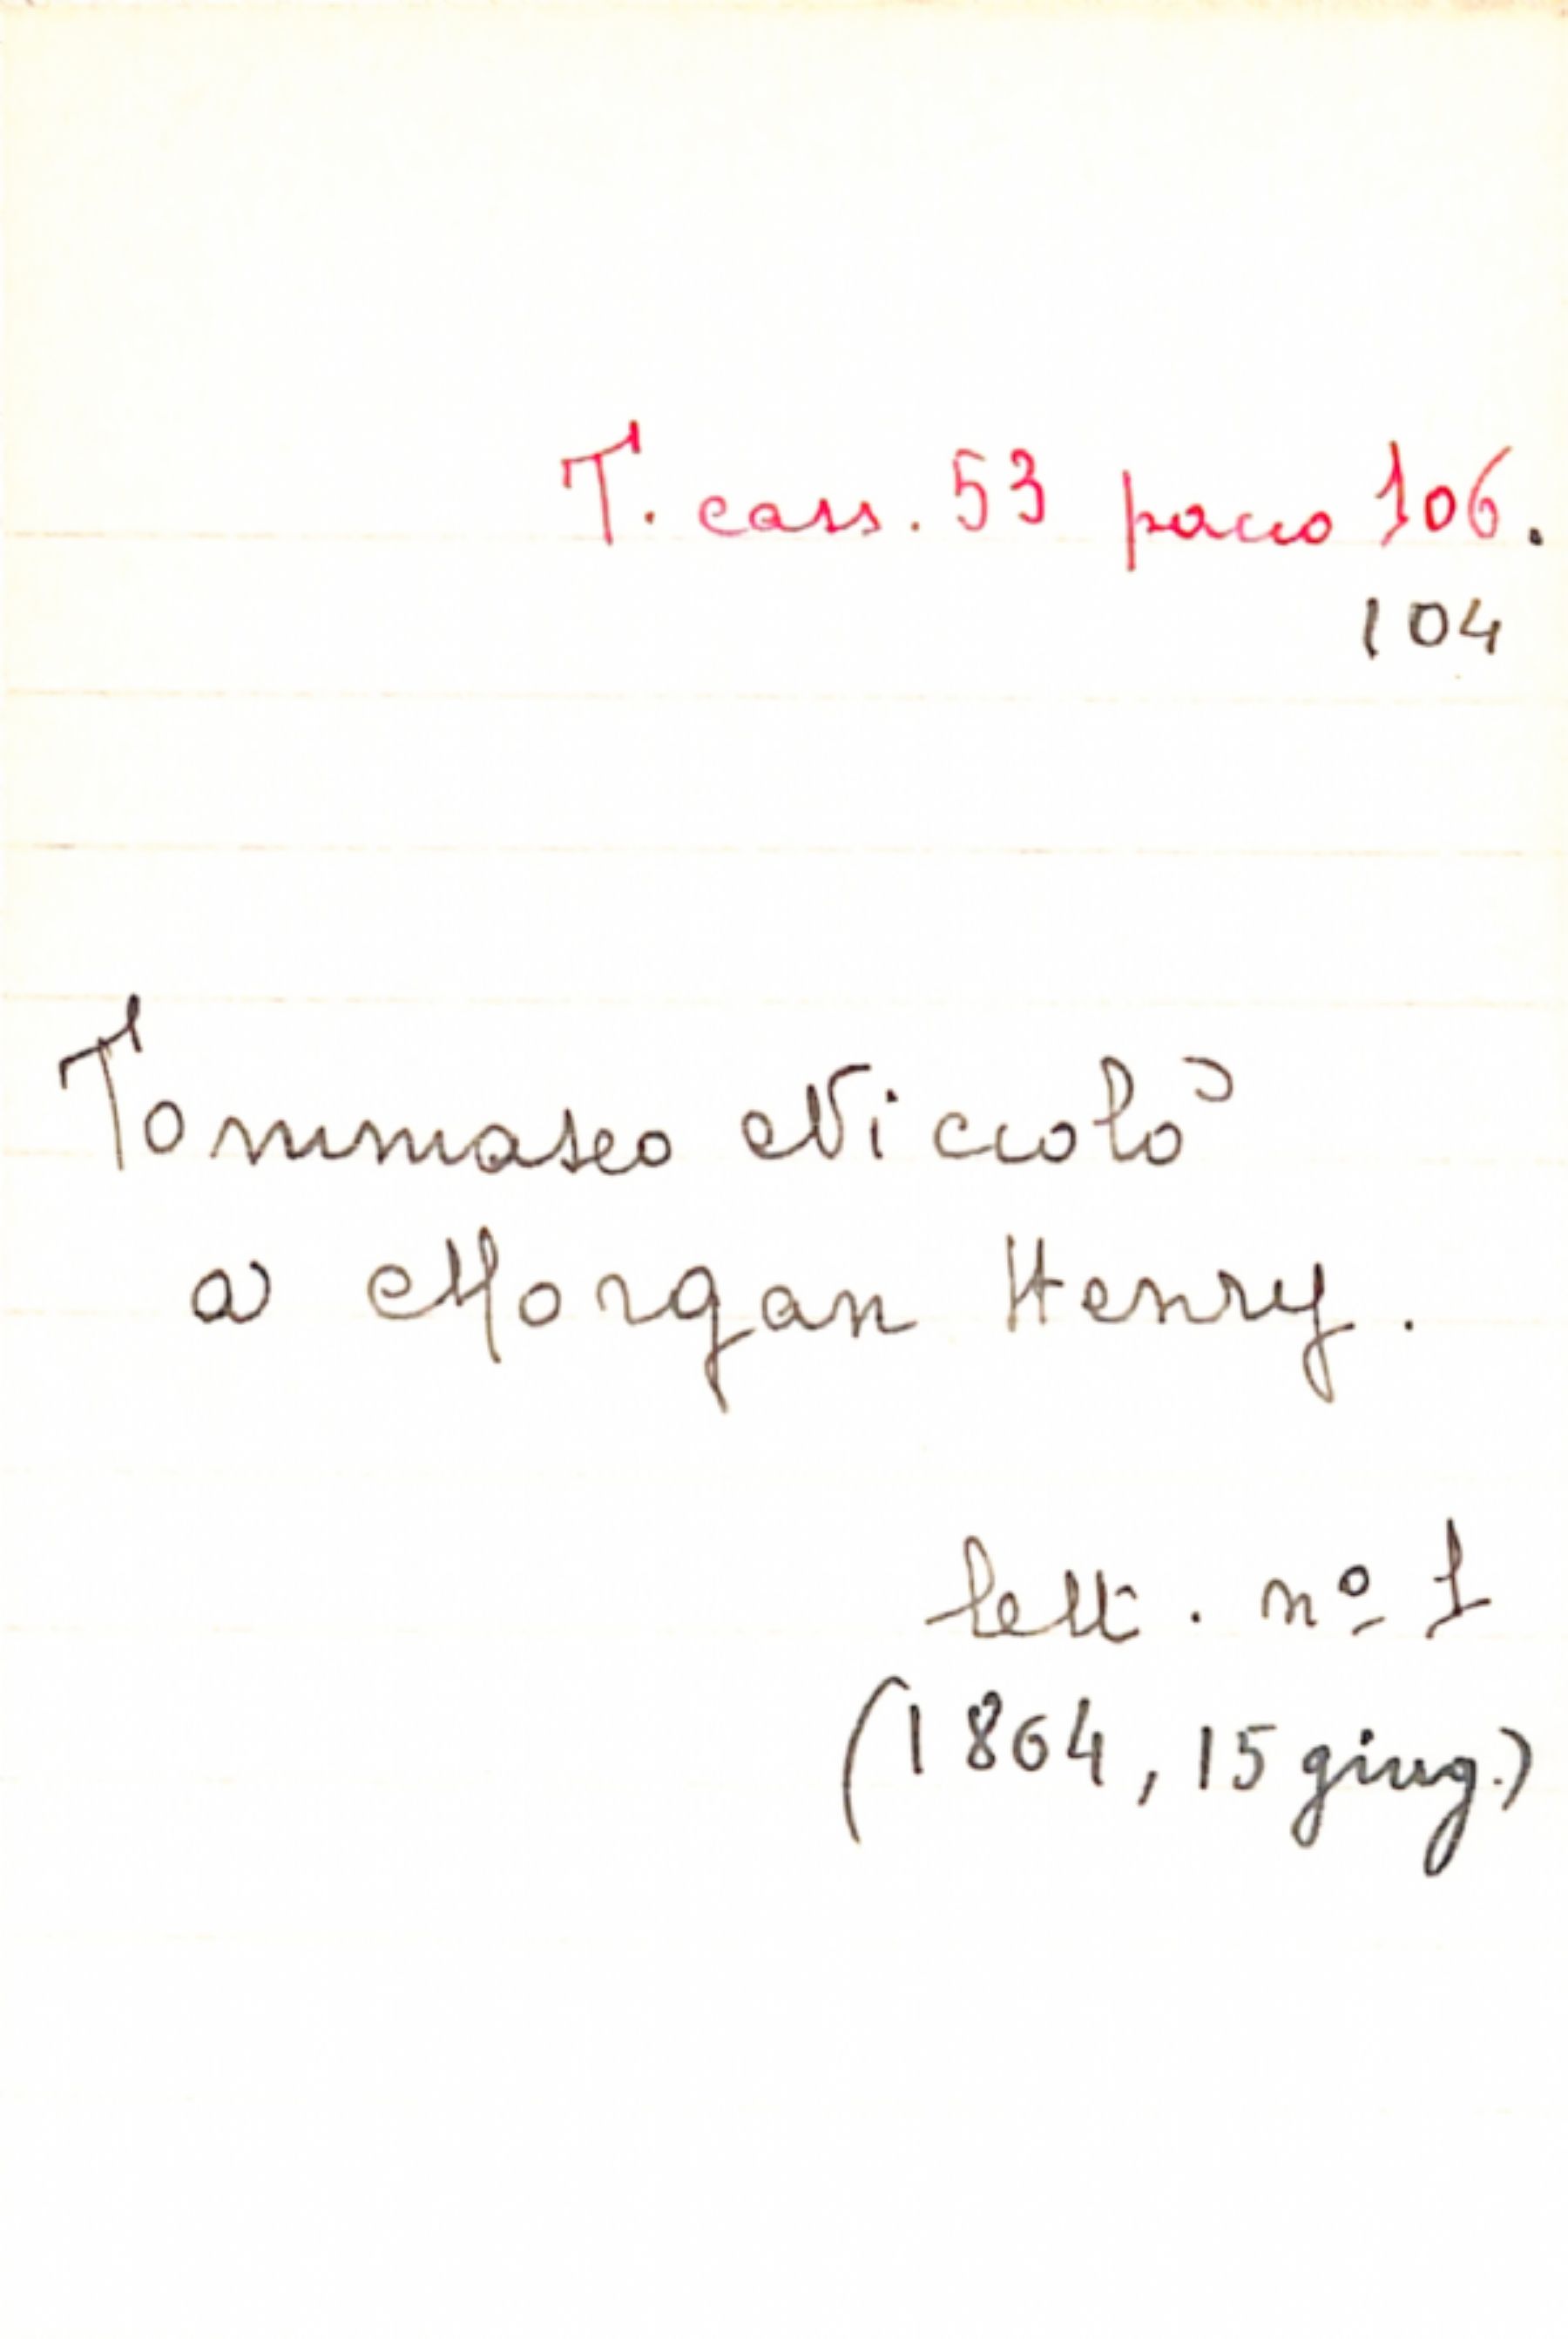 T. cass. 53 pacco 106.
104
Tommaseo Niccolò
a Morgan Henry.
lett. nº 1
(1864, 15 giug.)